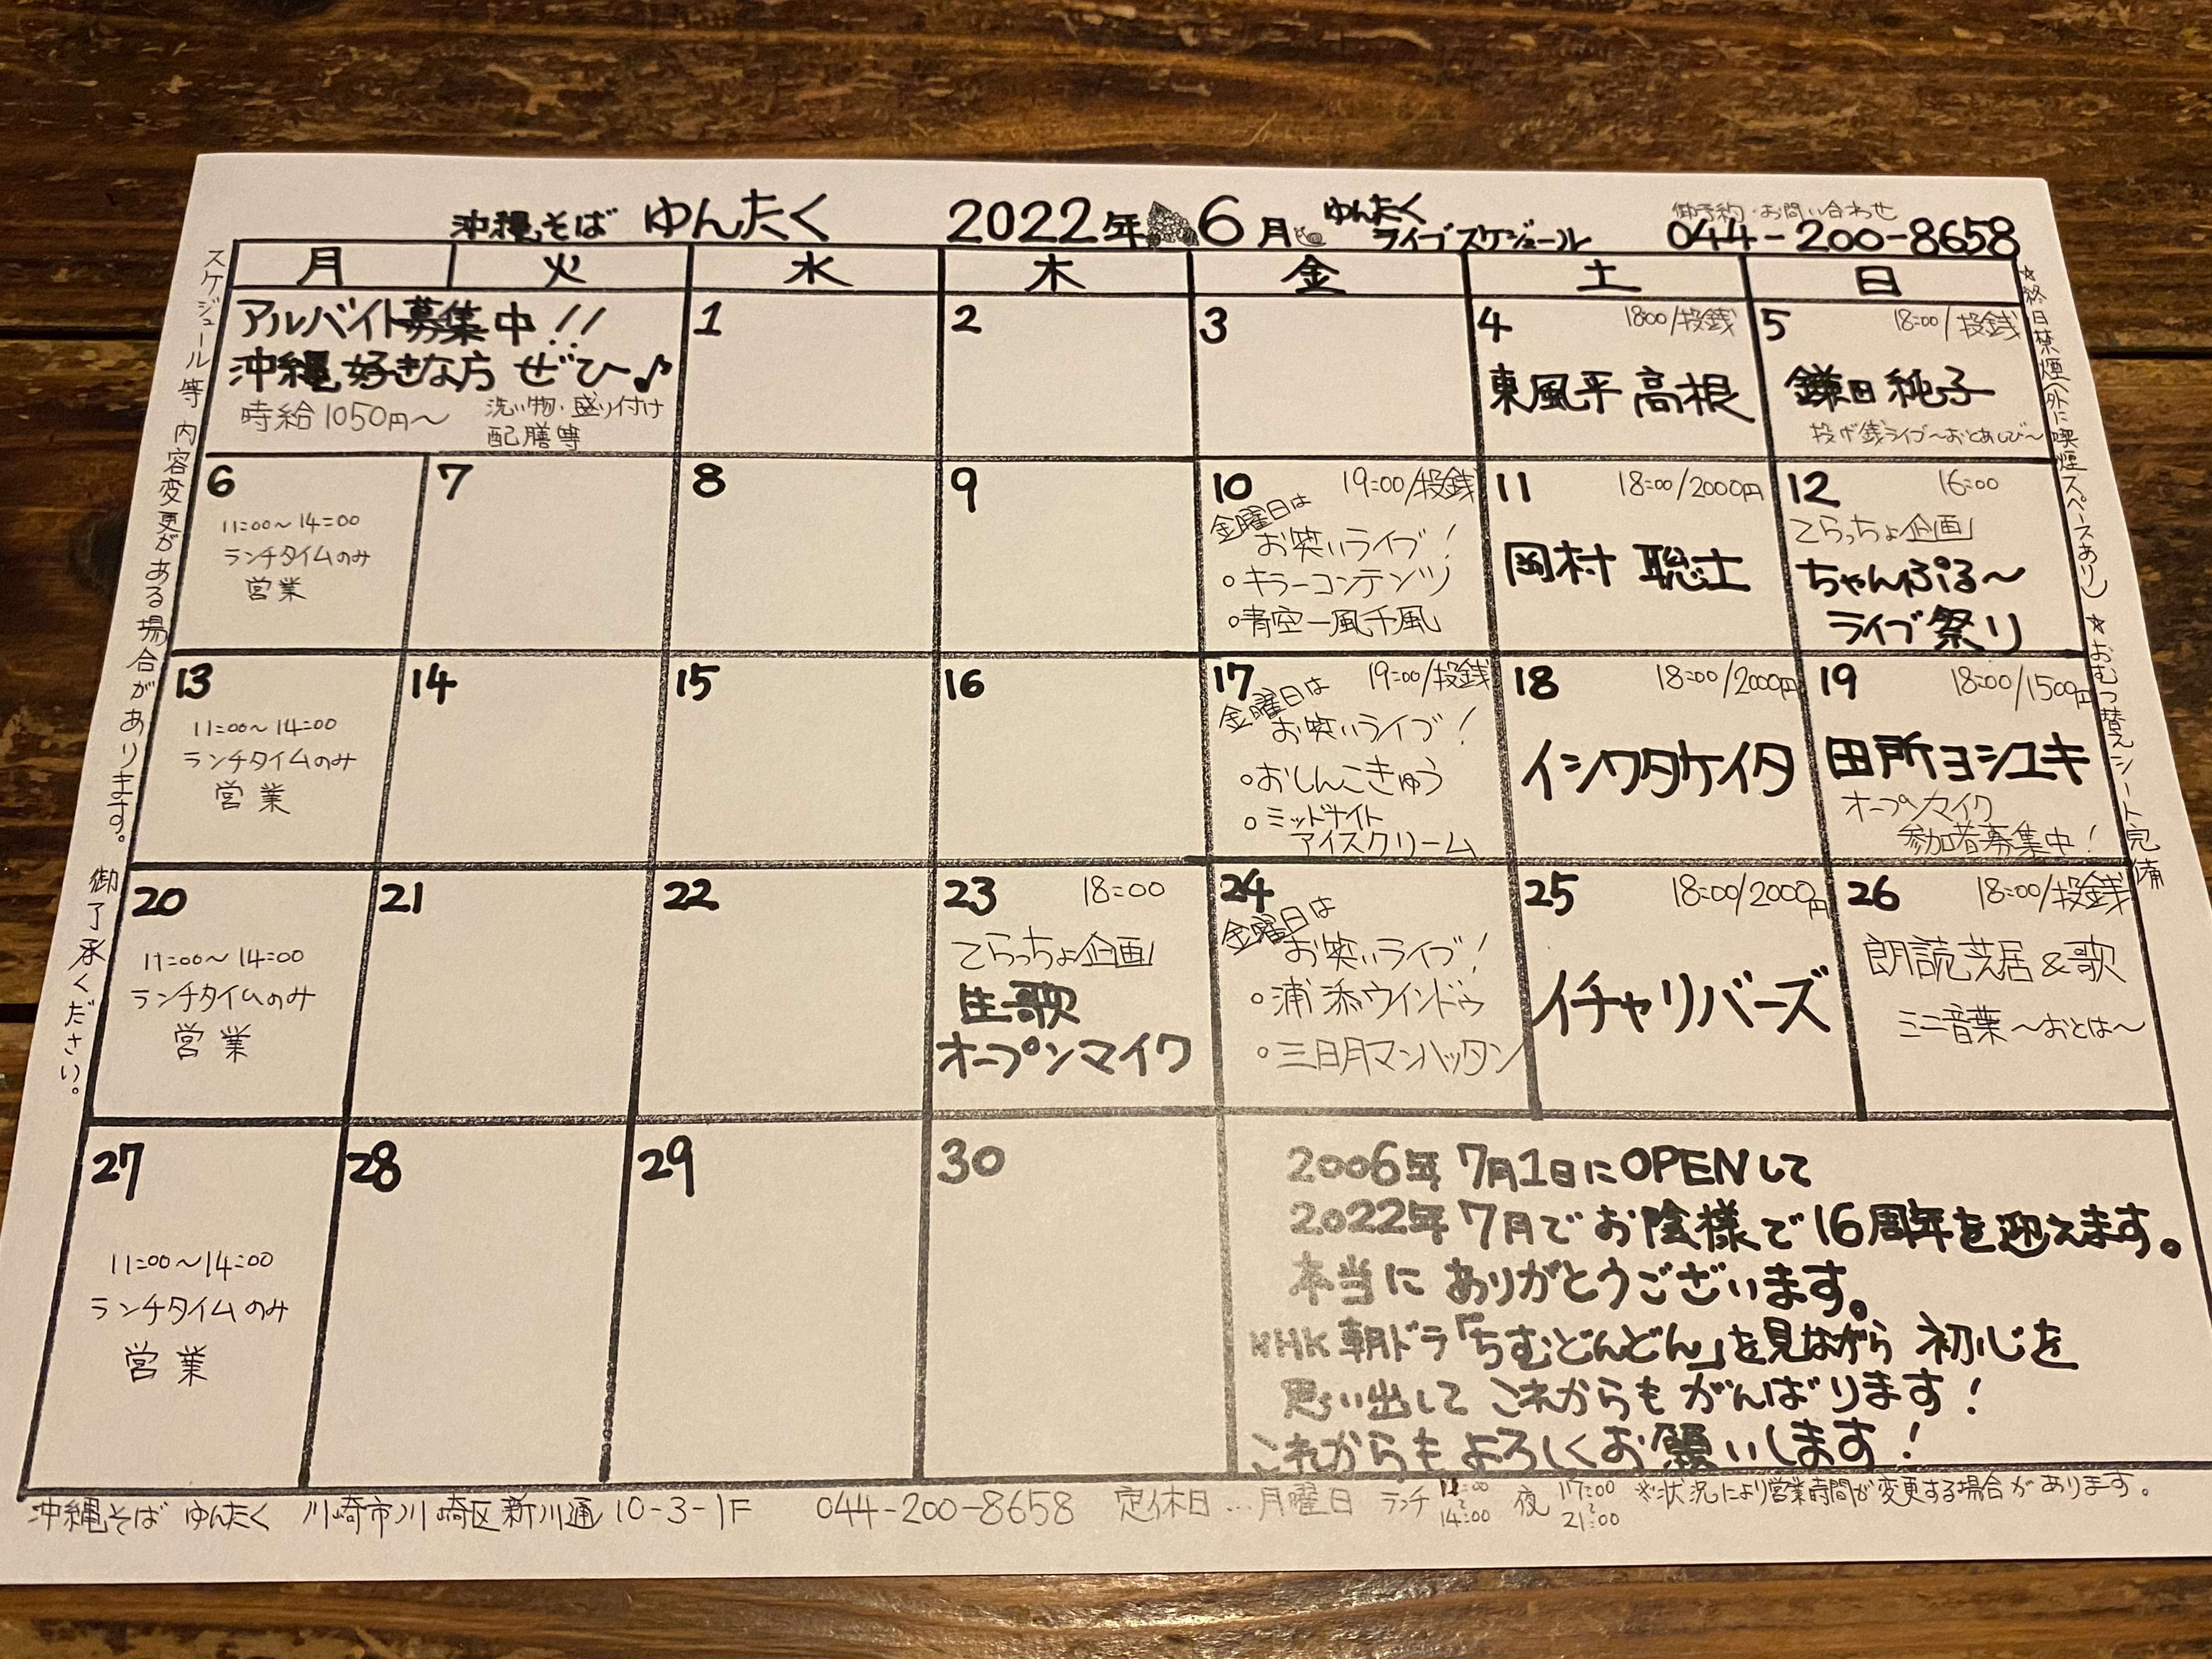 沖縄そば ゆんたく 2022年 6月 ゆんたく ライブスケジュール
御予約・お問い合わせ
044-200-8658
月 火 水 木 金 土 日
アルバイト募集中!!
沖縄好きな方 ぜひ〜♪
時給1050円〜 洗い物・盛り付け
配膳等
1
2
3
4 18:00/投銭
東風平 高根
5 18:00/投銭
鎌田 純子
投げ銭ライブ〜おとあしび〜
6
11:00〜14:00
ランチタイムのみ
営業
7
8
9
10 19:00/投銭
金曜日は
お笑いライブ!
○キラーコンテンツ
○青空一風千風
11 18:00/2000円
岡村 聡士
12 16:00
てらっちょ企画
ちゃんぷる〜
ライブ祭り
13
11:00〜14:00
ランチタイムのみ
営業
14
15
16
17 19:00/投銭
金曜日は
お笑いライブ!
○おしんこきゅう
○ミッドナイト
アイスクリーム
18 18:00/2000円
イシワタケイタ
19 18:00/1500円
田所ヨシユキ
オープンマイク
参加者募集中!
20
11:00〜14:00
ランチタイムのみ
営業
21
22
23 18:00
てらっちょ企画
生歌
オープンマイク
24
金曜日は
お笑いライブ!
○浦添ウインドゥ
○三日月マンハッタン
25 18:00/2000円
イチャリバーズ
26 18:00/投銭
朗読芝居&歌
ミニ音葉〜おとは〜
27
11:00〜14:00
ランチタイムのみ
営業
28
29
30
2006年 7月1日にOPENして
2022年 7月でお陰様で16周年を迎えます。
本当に ありがとうございます。
NHK 朝ドラ「ちむどんどん」を見ながら 初心を
思い出して これからも がんばります!
これからも よろしくお願いします!
沖縄そば ゆんたく 川崎市川崎区新川通10-3-1F 044-200-8658 定休日…月曜日 ランチ 11:00〜14:00 夜 17:00〜21:00 ※状況により営業時間が変更する場合があります。
スケジュール等 内容変更がある場合があります。 御了承ください。
☆終日禁煙(外に喫煙スペースあり) ☆おむつ替えシート完備